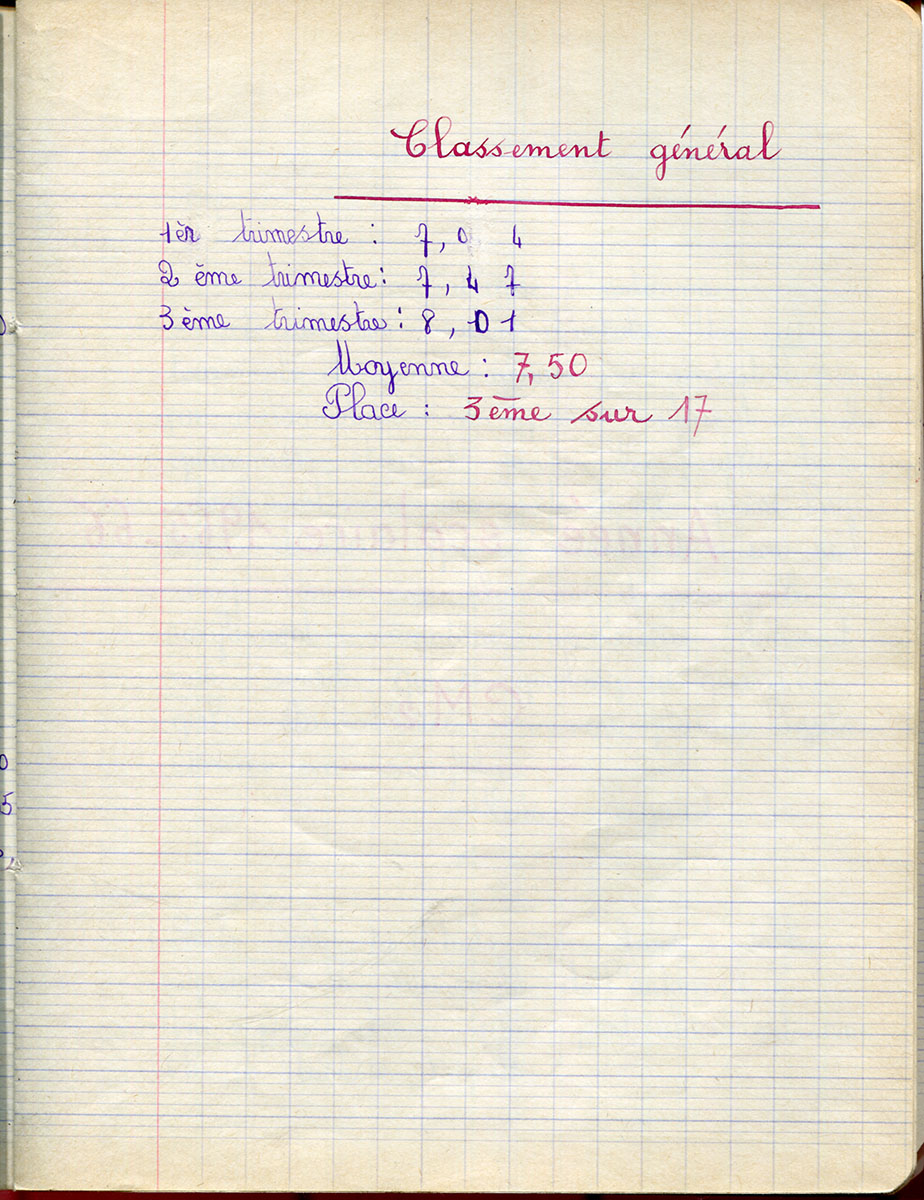 Classement général
1èr trimestre : 7,04
2ème trimestre : 7,47
3ème trimestre : 8,01
Moyenne : 7,50
Place : 3ème sur 17